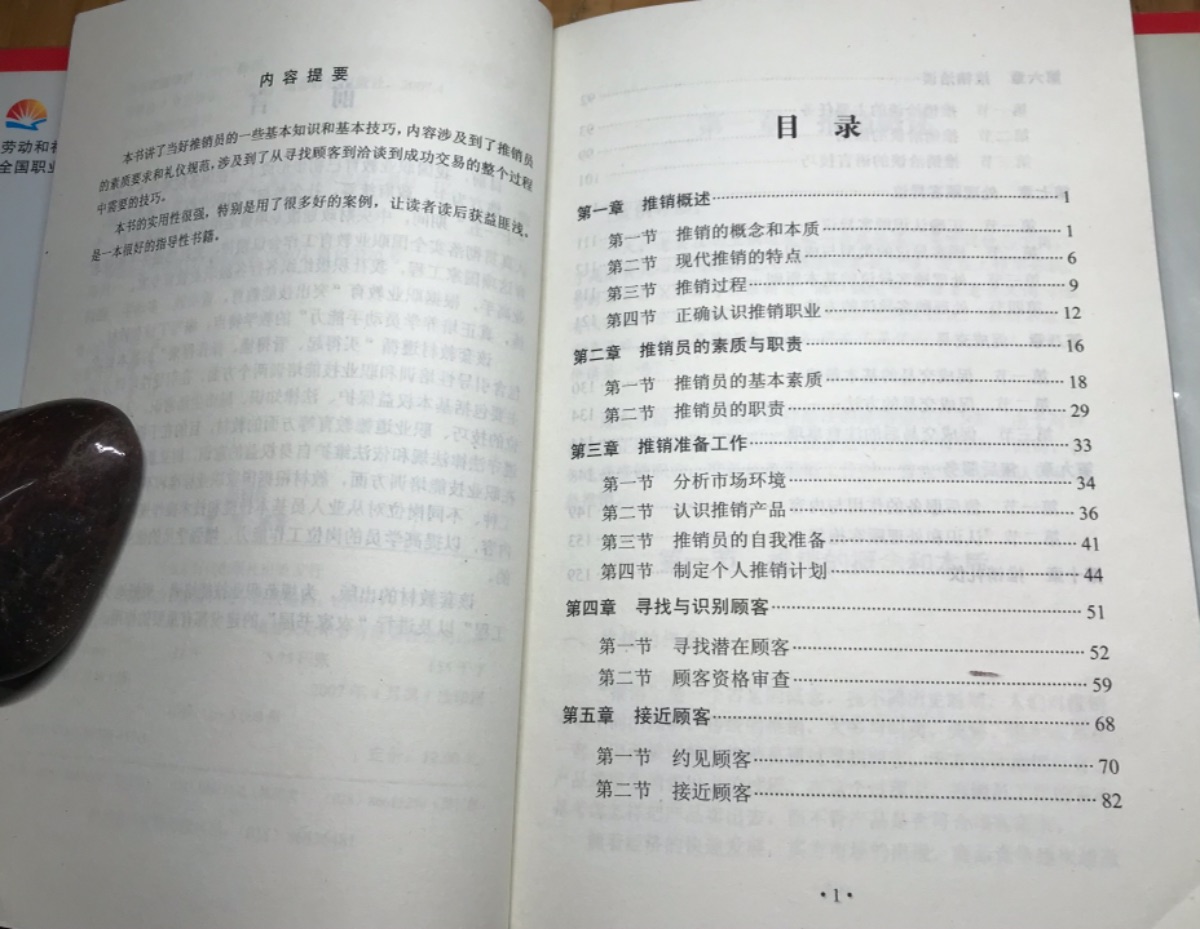 劳动和社
全国职业
内容提要
本书讲了当好推销员的一些基本知识和基本技巧，内容涉及到了推销员
的素质要求和礼仪规范，涉及到了从寻找顾客到洽谈到成功交易的整个过程
中需要的技巧。
本书的实用性很强，特别是用了很多好的案例，让读者读后获益匪浅，
是一本很好的指导性书籍。
目录
第一章 推销概述 1
第一节 推销的概念和本质 1
第二节 现代推销的特点 6
第三节 推销过程 9
第四节 正确认识推销职业 12
第二章 推销员的素质与职责 16
第一节 推销员的基本素质 18
第二节 推销员的职责 29
第三章 推销准备工作 33
第一节 分析市场环境 34
第二节 认识推销产品 36
第三节 推销员的自我准备 41
第四节 制定个人推销计划 44
第四章 寻找与识别顾客 51
第一节 寻找潜在顾客 52
第二节 顾客资格审查 59
第五章 接近顾客 68
第一节 约见顾客 70
第二节 接近顾客 82
·1·